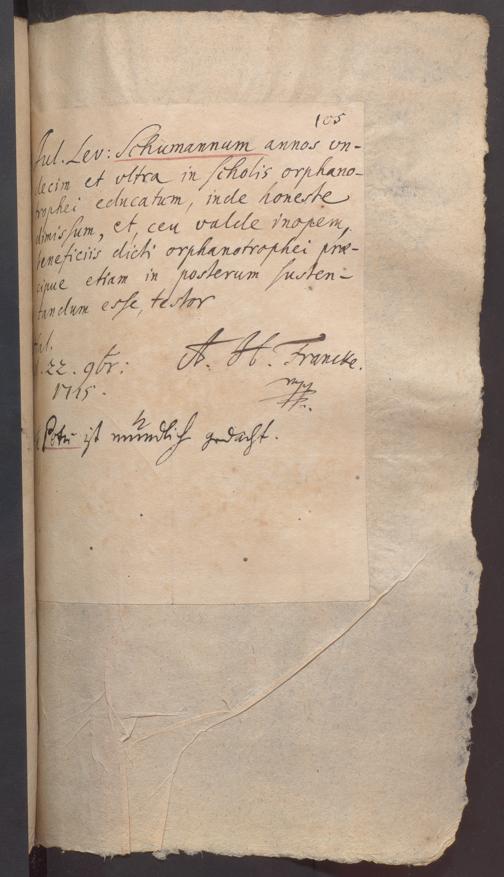 105
Jul. Lev: Schumannum annos vn-
decim et vltra in scholis orphano-
trophei educatum, inde honeste
dimissum, et, ceu valde inopem,
beneficiis dicti orphanotrophei præ-
cipue etiam in posterum susten-
tandum esse, testor
Hal.
d. 22. 9br: A. H. Francke.
1715. mpp.
Petri ist mündlich gedacht.